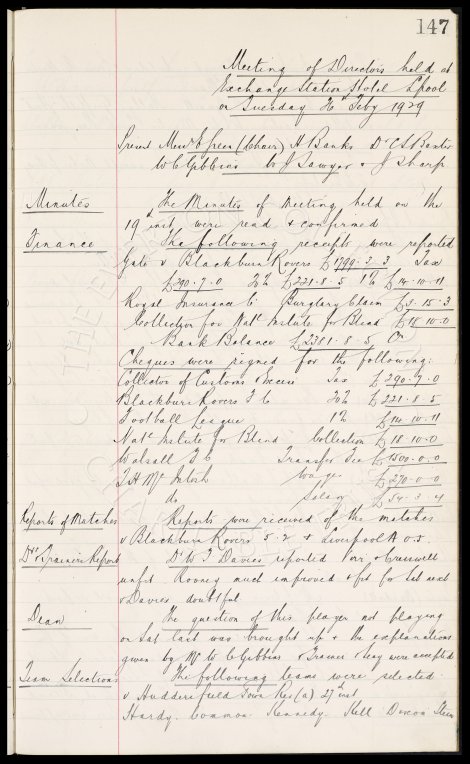 147
Meeting of Directors held at
Exchange Station Hotel L'pool
on Tuesday 26th Feby 1929
Present Messrs E Green (Chair) A Banks Dr C S Baxter
W C Gibbins J Sawyer & J Sharp
Minutes The Minutes of Meeting held on the
19th inst, were read & confirmed
Finance The following receipts were reported
Gate v Blackburn Rovers £1799.3.3 Tax
£290.7.0 20% £221.8.5 1% £14.10.11
Royal Insurance Co Burglary Claim £3.15.3
Collection for Natl Instute for Blind £18.10.0
Bank Balance £2381.8.5 Cr
Cheques were signed for the following:
Collector of Customs & Excise Tax £290.7.0
Blackburn Rovers F C 20% £221.8.5
Football League 1% £14.10.11
Natl Instute for Blind Collection £18.10.0
Walsall F C Transfer Fee £1500.0.0
T H McIntosh Wages £270.0.0
do Salary £54.3.4
Reports of Matches Reports were received of the matches
v Blackburn Rovers 5.2 & Liverpool A 0.5.
Drs & Trainers Report Dr W J Davies reported Parr & Cresswell
unfit Rooney much improved & fit for let next
& Davies doubtful
Dean The question of this player not playing
on Sat last was brought up & the explanations
given by Mr W C Gibbins & Trainer were accepted
Team Selections The following teams were selected
v Huddersfield Town Res (a) 27th inst
Hardy. Common Kennedy Kell Dixon Stein